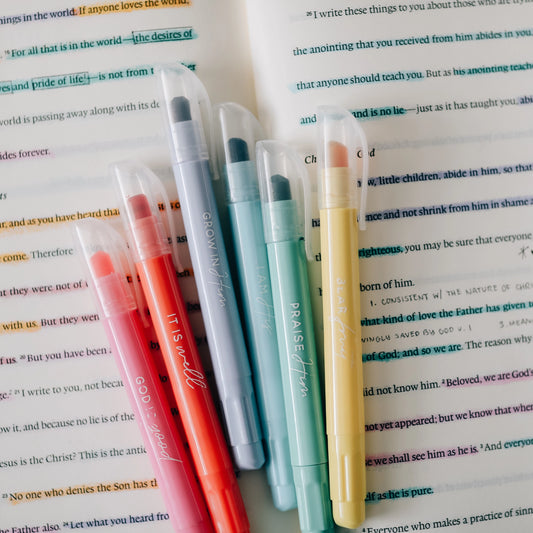 things in the world. If anyone loves the world,
15 For all that is in the world—the desires of
yes and pride of life—is not from th
world is passing away along with its de
ides forever.
ts
ar, and as you have heard
come. Therefore
hat they were not of
with us. But they were
f us. 20 But you have been
ge. 21 I write to you, not becau
ow it, and because no lie is of the
esus is the Christ? This is the antic
23 No one who denies the Son has th
he Father also. 24 Let what you heard from
GOD IS good
IT IS well
GROW IN Him
I AM His
PRAISE Him
BEAR fruit
26 I write these things to you about those who are tryin
the anointing that you received from him abides in you,
that anyone should teach you. But as his anointing teache
and is no lie—just as it has taught you, abid
Chi God
ow, little children, abide in him, so that
ence and not shrink from him in shame a
righteous, you may be sure that everyone
born of him.
1. CONSISTENT W/ THE NATURE OF CHR
what kind of love the Father has given to
INGLY SAVED BY GOD V. 1 3. MEAN
of God; and so we are. The reason why
did not know him. 2 Beloved, we are God's
not yet appeared; but we know that when
se we shall see him as he is. 3 And everyone
elf as he is pure.
4 Everyone who makes a practice of sinn